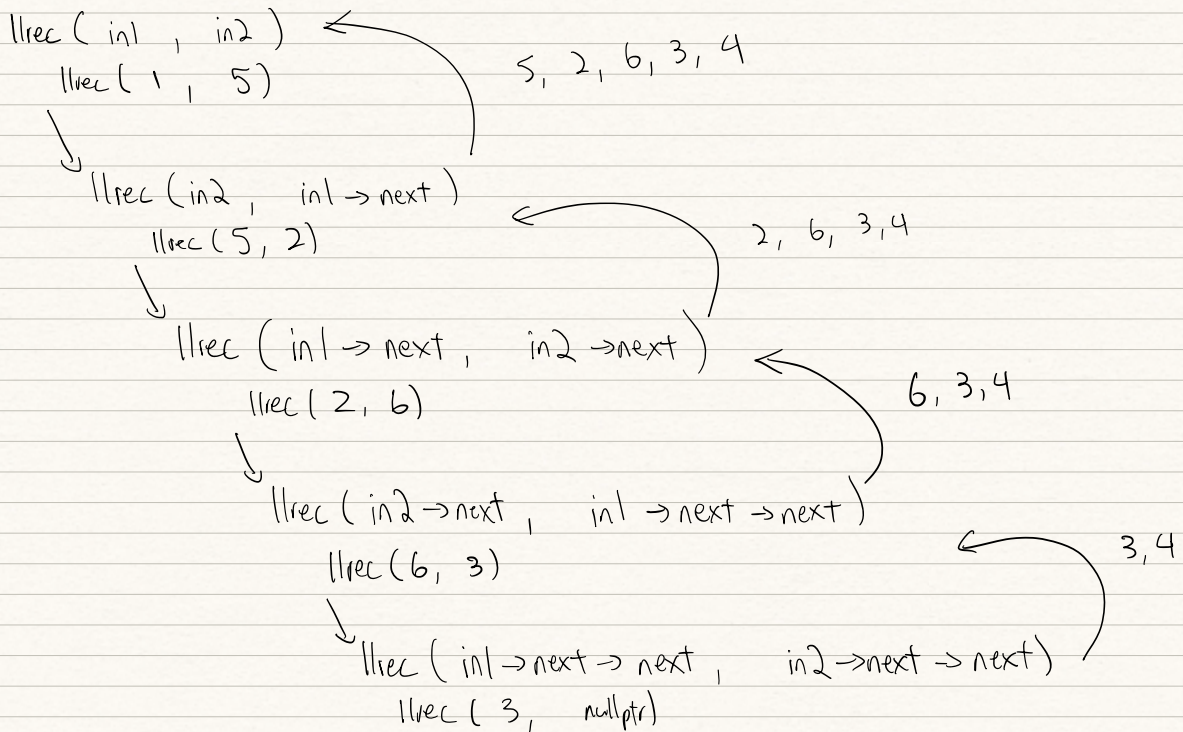 llrec ( in1 , in2 )
5, 2, 6, 3, 4
llrec ( 1 , 5 )
llrec ( in2 , in1 -> next )
2, 6, 3, 4
llrec ( 5, 2 )
llrec ( in1 -> next , in2 -> next )
6, 3, 4
llrec ( 2, 6 )
llrec ( in2 -> next , in1 -> next -> next )
3, 4
llrec ( 6, 3 )
llrec ( in1 -> next -> next , in2 -> next -> next )
llrec ( 3, nullptr )